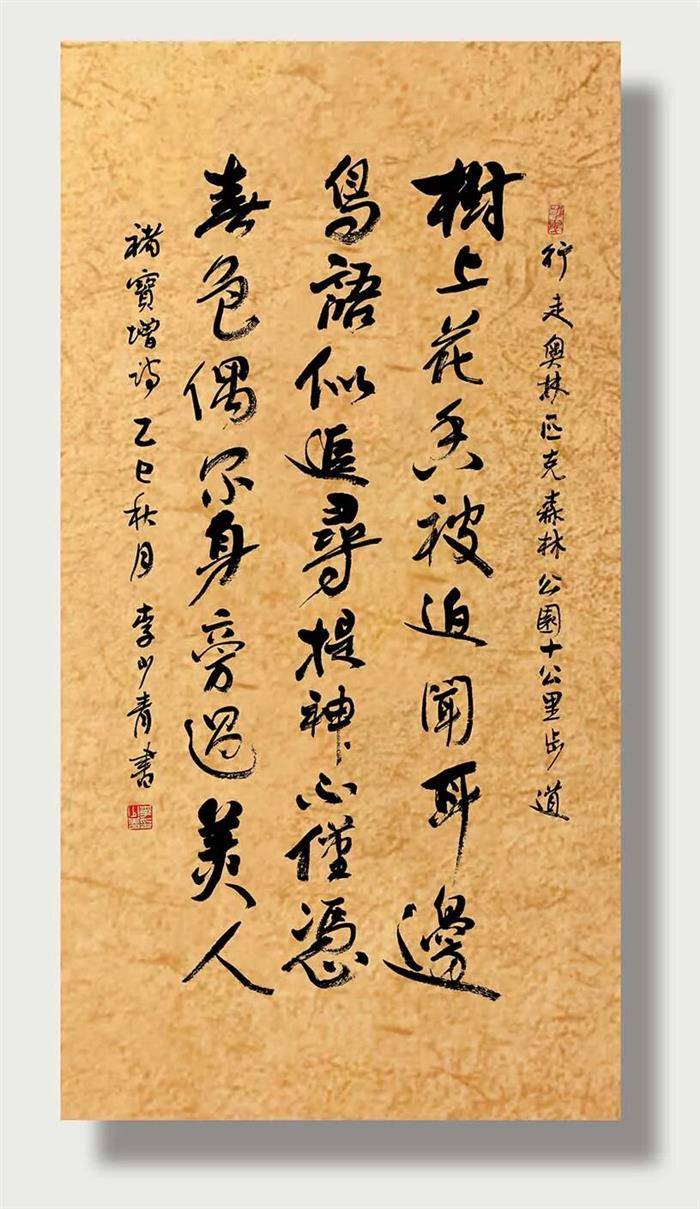 行走奥林匹克森林公園十公里步道
樹上花香被迫聞耳邊
鳥語似追尋提神心僅憑
春色偶尔身旁過美人
褚寶增詩乙巳秋月李山青書